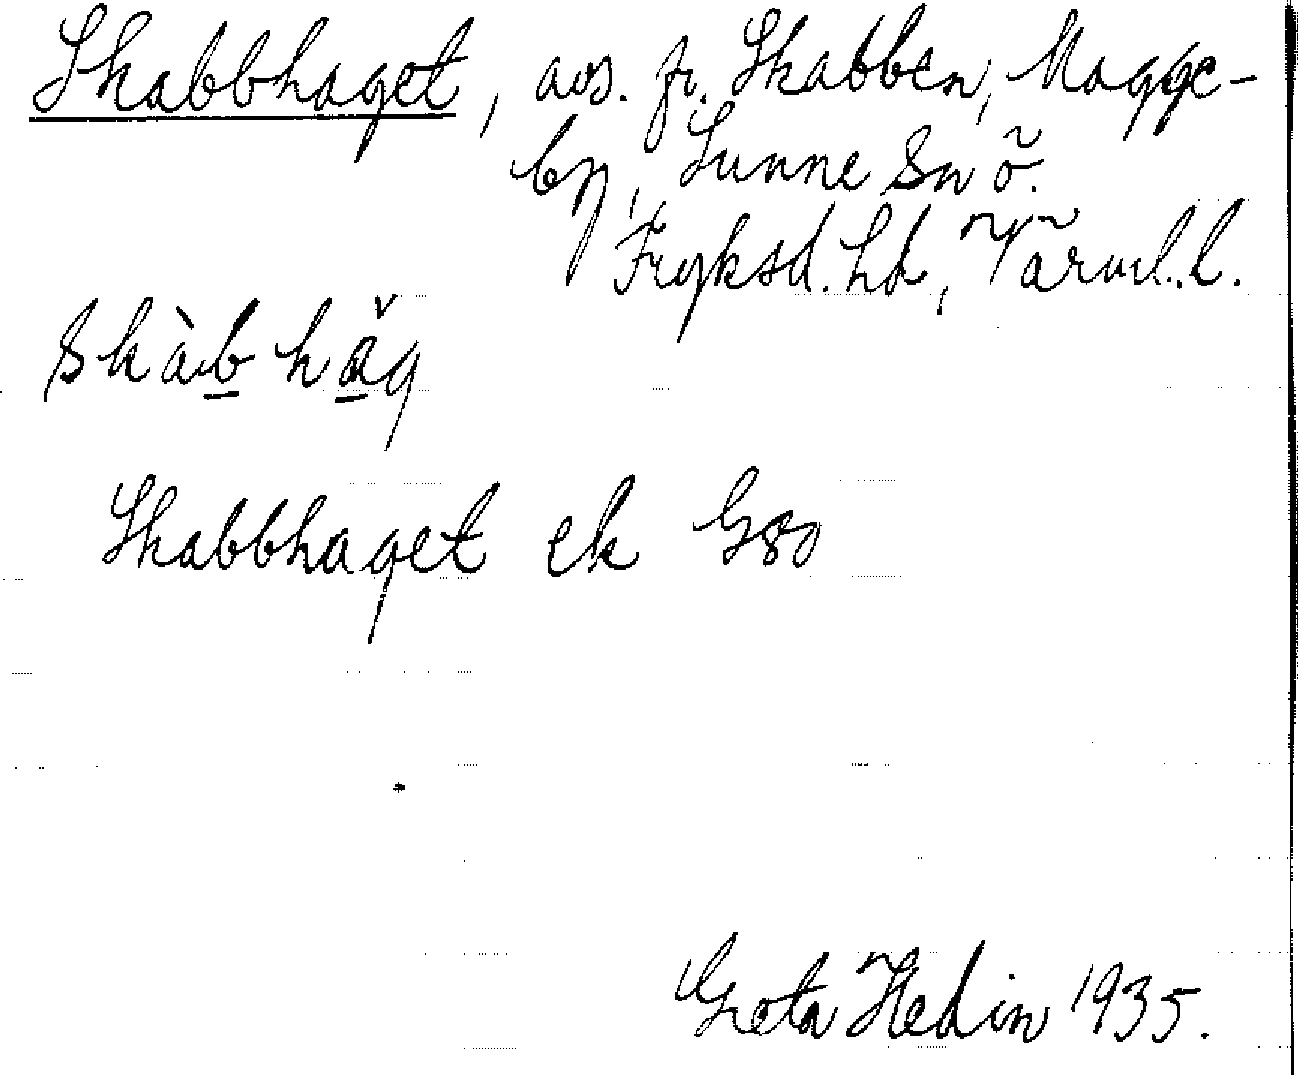 Skabbhaget, avs. fr. Skabben, Magge-
by, Sunne Sn ö.
Fryksd. hd, Värml. l.
skàb hǎg
Skabbhaget ek G80
Greta Hedin 1935.